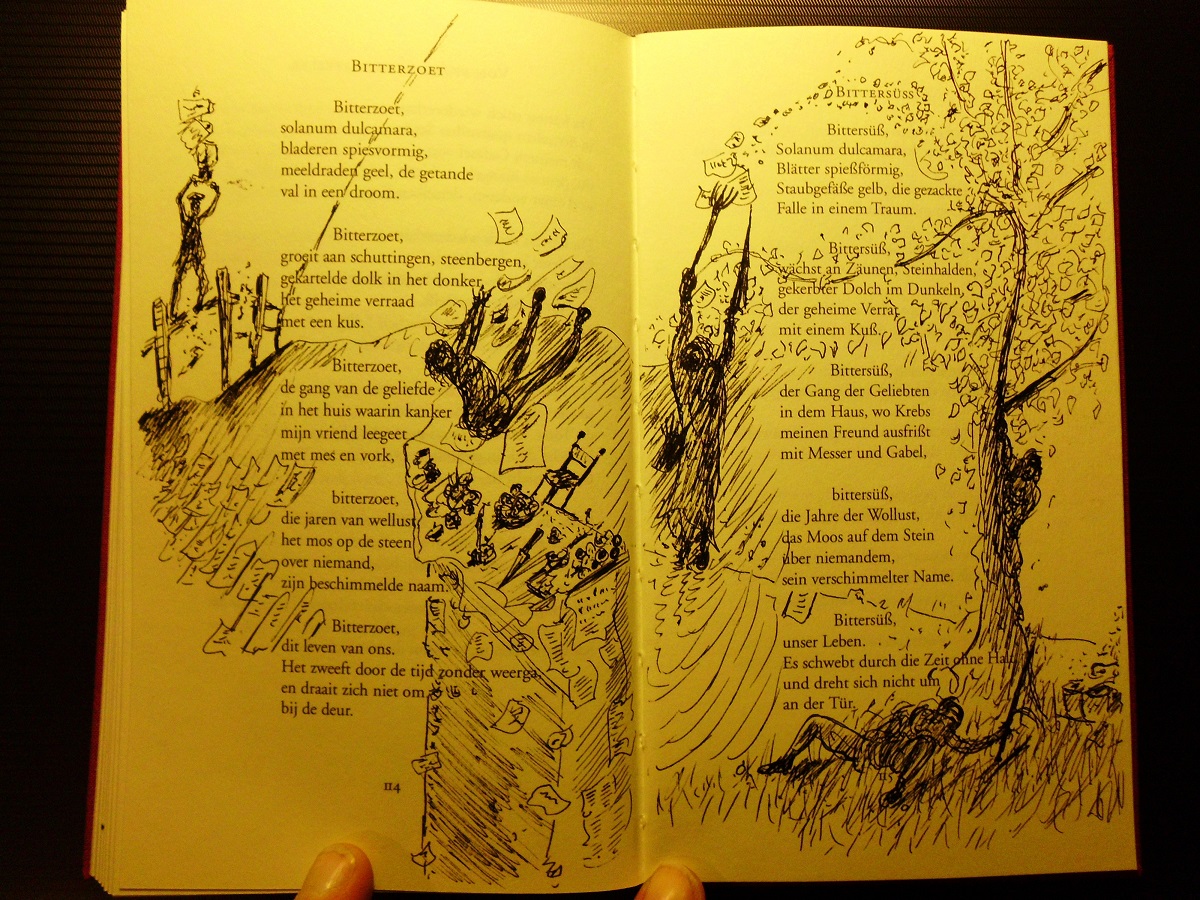 BITTERZOET
Bitterzoet,
solanum dulcamara,
bladeren spiesvormig,
meeldraden geel, de getande
val in een droom.
Bitterzoet,
groeit aan schuttingen, steenbergen,
gekartelde dolk in het donker,
het geheime verraad
met een kus.
Bitterzoet,
de gang van de geliefde
in het huis waarin kanker
mijn vriend leegeet
met mes en vork,
bitterzoet,
die jaren van wellust,
het mos op de steen
over niemand,
zijn beschimmelde naam.
Bitterzoet,
dit leven van ons.
Het zweeft door de tijd zonder weerga,
en draait zich niet om
bij de deur.
114
BITTERSÜSS
Bittersüß,
Solanum dulcamara,
Blätter spießförmig,
Staubgefäße gelb, die gezackte
Falle in einem Traum.
Bittersüß,
wächst an Zäunen, Steinhalden,
gekerbter Dolch im Dunkeln,
der geheime Verrat
mit einem Kuß.
Bittersüß,
der Gang der Geliebten
in dem Haus, wo Krebs
meinen Freund ausfrißt
mit Messer und Gabel,
bittersüß,
die Jahre der Wollust,
das Moos auf dem Stein
über niemandem,
sein verschimmelter Name.
Bittersüß,
unser Leben.
Es schwebt durch die Zeit ohne Halt
und dreht sich nicht um
an der Tür.